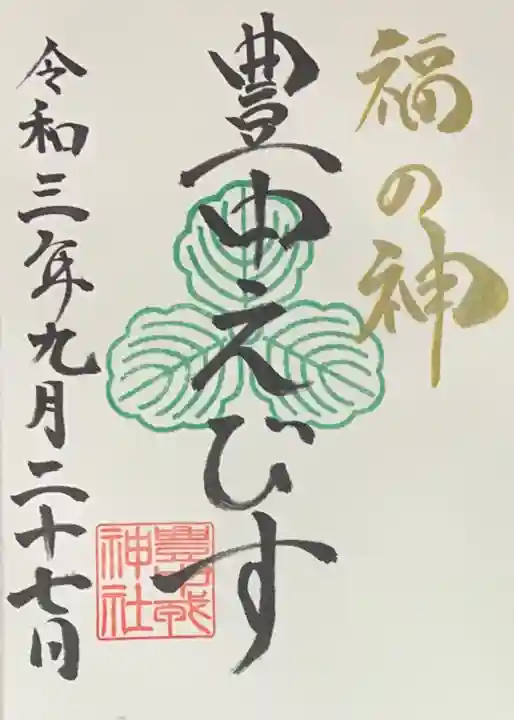 福の神
豊中えびす
令和三年九月二十七日
神社